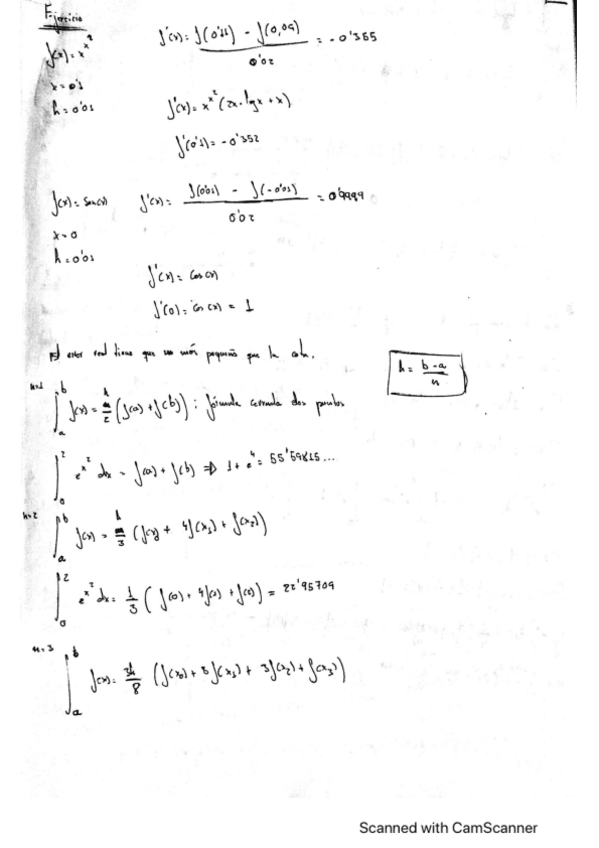 Ejercicio
f(x) = x^x^2
x = 0'1
h = 0'01
f'(x) = (f(0'11) - f(0,09)) / 0'02 = -0'355
f'(x) = x^x^2 (2x·lgx + x)
f'(0'1) = -0'352
f(x) = Sen(x)
x = 0
h = 0'01
f'(x) = (f(0'01) - f(-0'01)) / 0'02 = 0'9999
f'(x) = cos(x)
f'(0) = cos(x) = 1
El error real tiene que ser más pequeño que h
h = (b-a)/n
n=1
∫_a^b f(x) = h/2 (f(a) + f(b)) : fórmula cerrada dos puntos
∫_0^2 e^x^2 dx = f(a) + f(b) ⇒ 1 + e^4 = 55'59815...
n=2
∫_a^b f(x) = h/3 (f(x) + 4f(x_1) + f(x_2))
∫_0^2 e^x^2 dx = 1/3 (f(0) + 4f(1) + f(2)) = 22'95709
n=3
∫_a^b f(x) = 3h/8 (f(x_0) + 3f(x_1) + 3f(x_2) + f(x_3))
Scanned with CamScanner